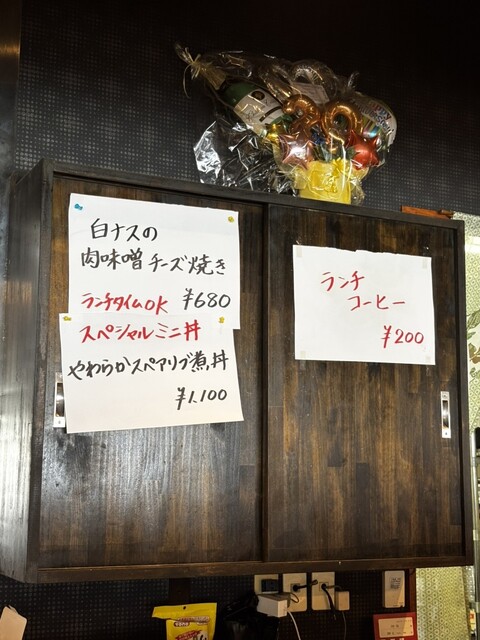 白ナスの
肉味噌チーズ焼き
ランチタイムOK ¥680
スペシャルミニ丼
やわらかスペアリブ煮丼
¥1,100
ランチ
コーヒー
¥200